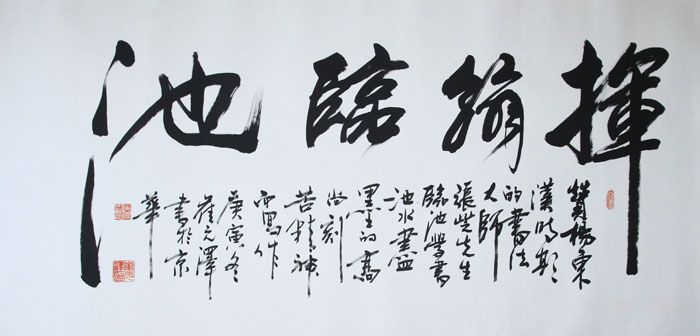 揮翰臨池
贊揚東
漢時期
的書法
大師
張芝先生
臨池學書
池水盡
墨的高
尚刻
苦精神
而寫作
庚寅冬
崔元澤
書於京
華